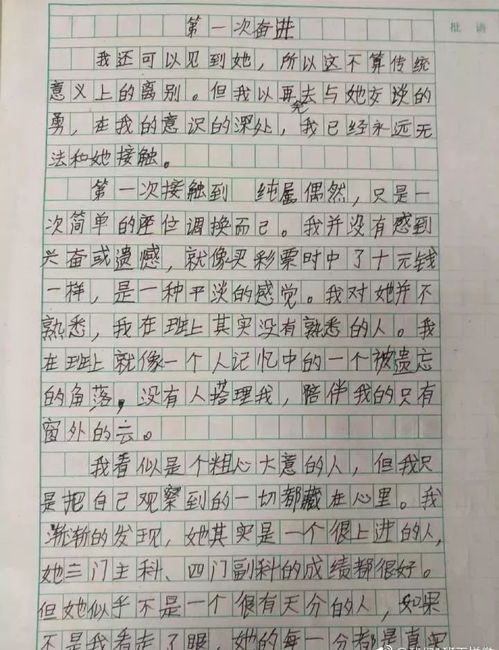 第一次奋进
批语
我还可以见到她，所以这不算传统
意义上的离别。但我以再无法去与她交谈的
勇，在我的意识的深处，我已经永远无
法和她接触。
第一次接触到 纯属偶然，只是一
次简单的座位调换而已。我并没有感到
兴奋或遗憾，就像买彩票时中了十元钱
一样，是一种平淡的感觉。我对她并不
熟悉，我在班上其实没有熟悉的人。我
在班上就像一个人记忆中的一个被遗忘
的角落，没有人搭理我，陪伴我的只有
窗外的云。
我看似是个粗心大意的人，但我只
是把自己观察到的一切都藏在心里。我
渐渐的发现，她其实是一个很上进的人，
她三门主科、四门副科的成绩都很好。
但她似乎不是一个很有天分的人，如果
不是我看走了眼，她的每一分都是真实